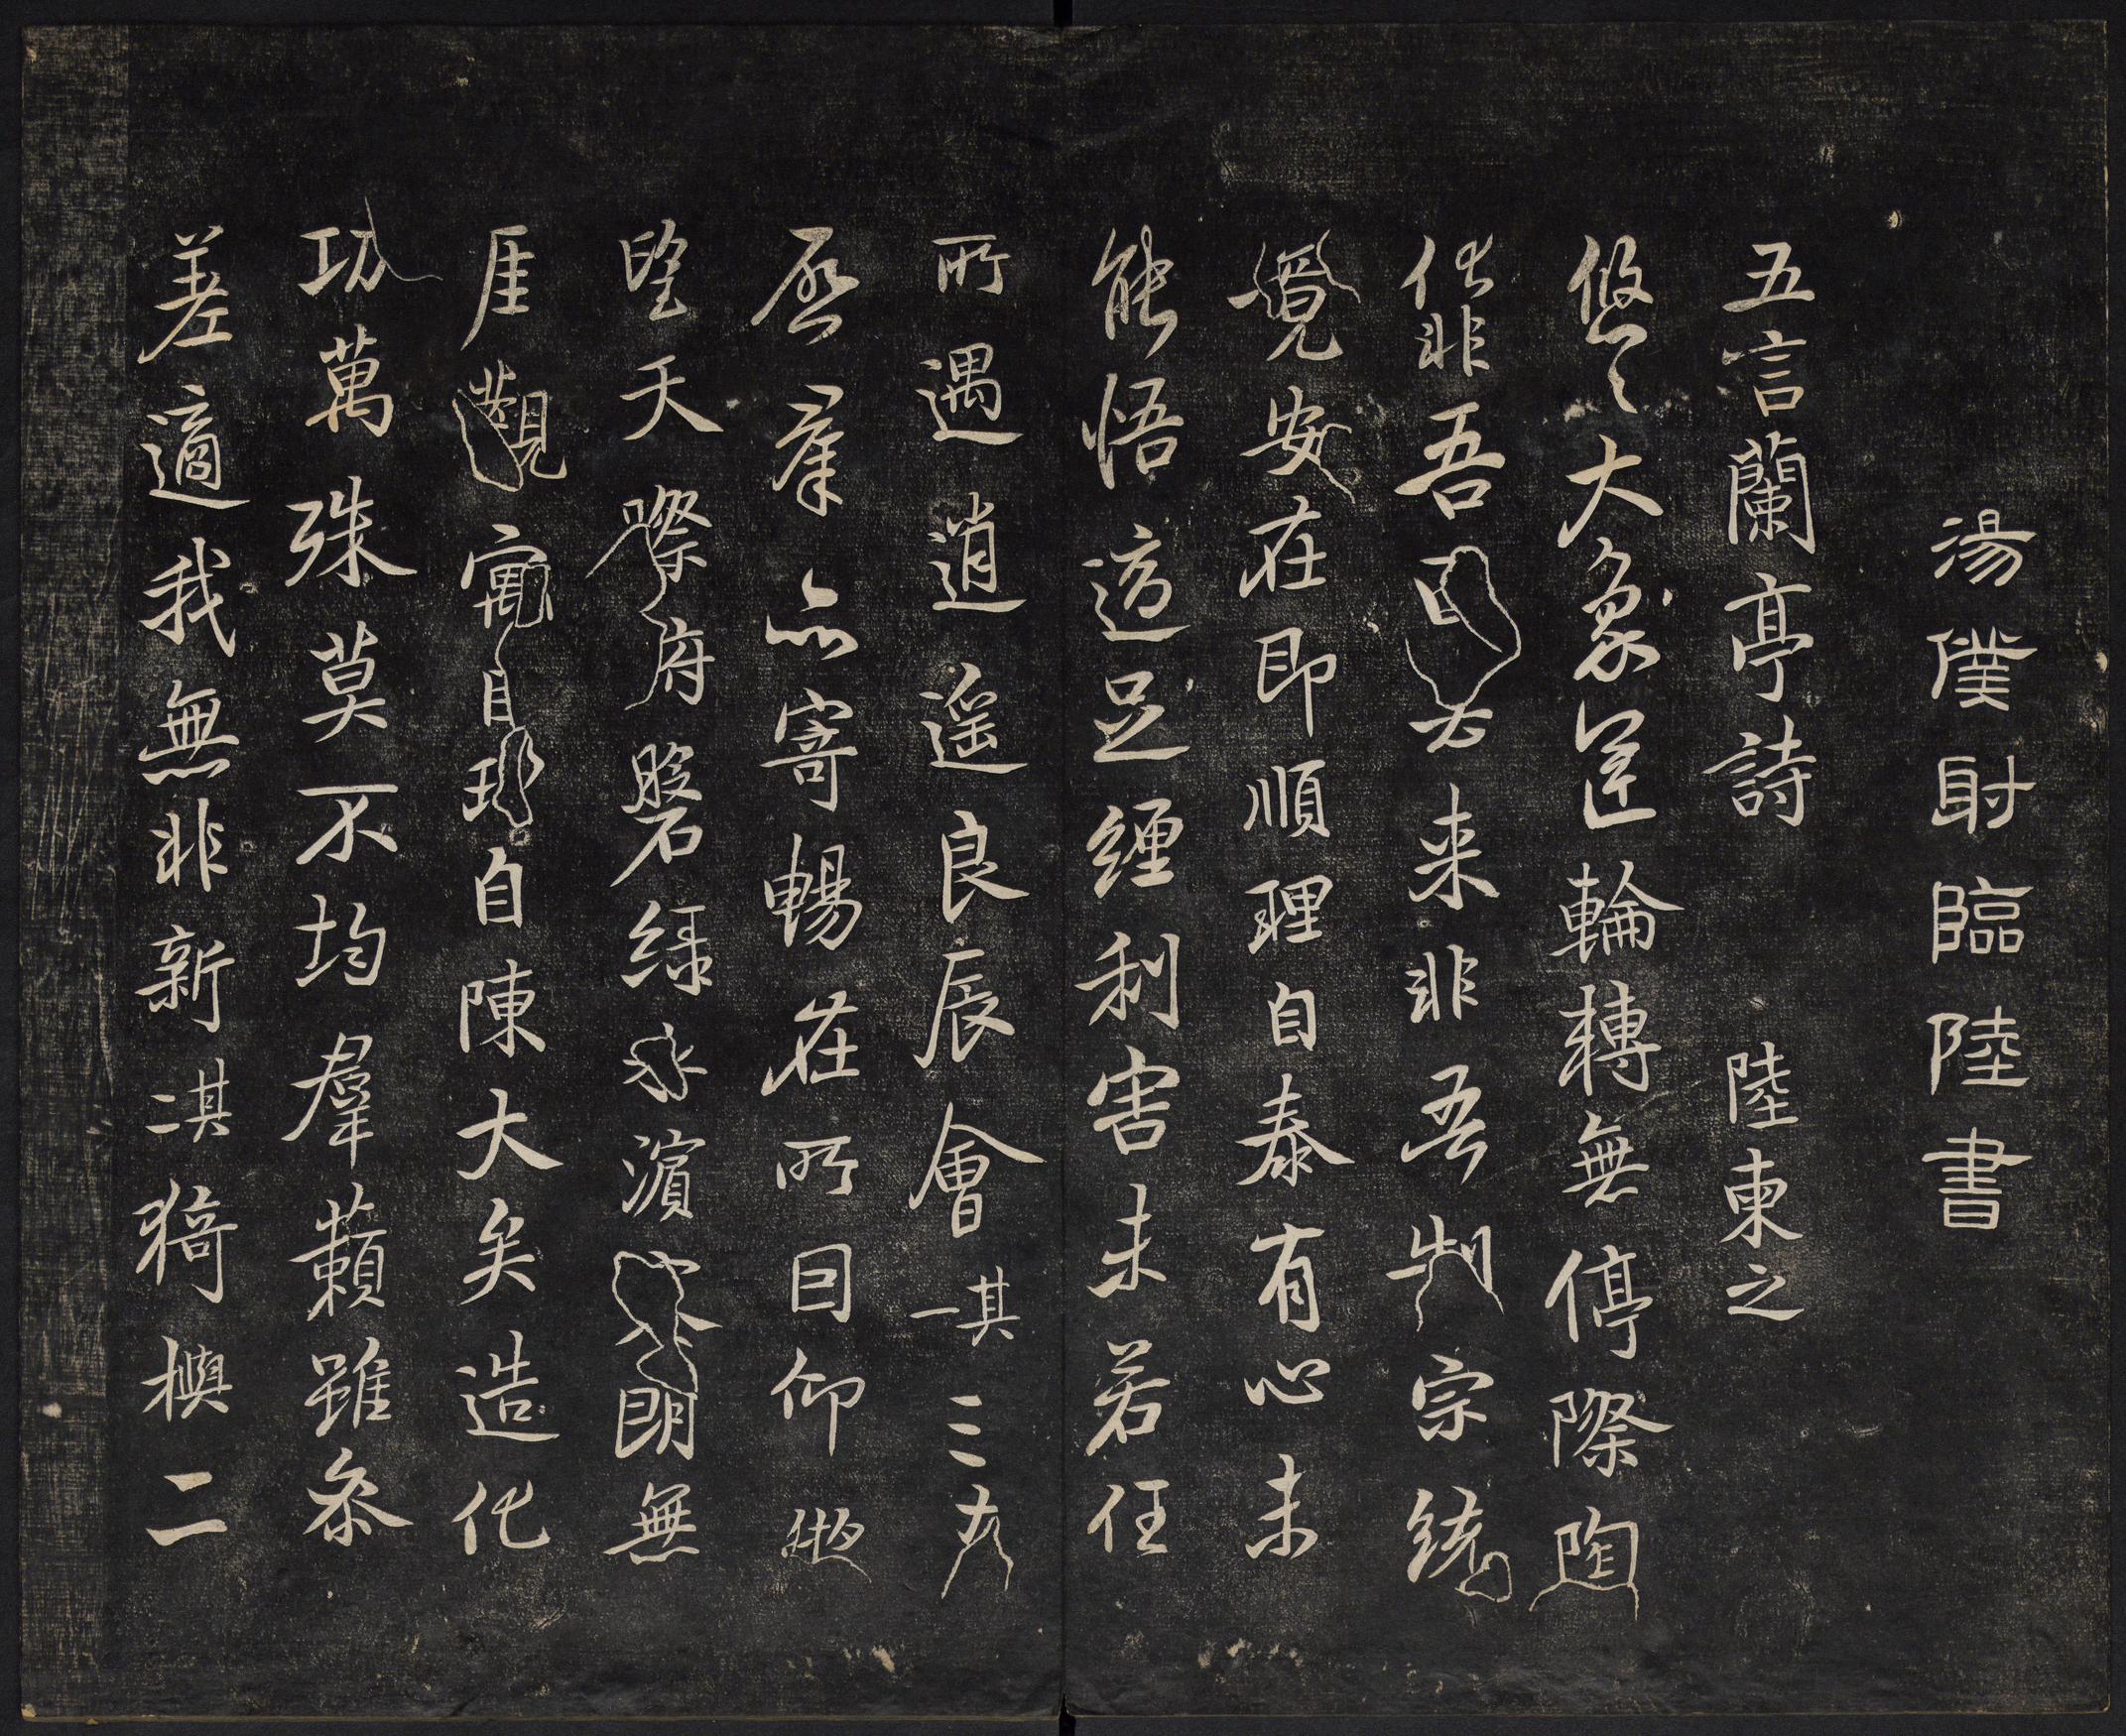 湯僕射臨陸書
五言蘭亭詩 陸柬之
悠〻大象運輪轉無停際陶
化非吾因去来非吾制宗統
竟安在即順理自泰有心未
能悟適足纏利害未若任
所遇逍遥良辰會其一 三春
啓羣品寄暢在所因仰
望天際府磐緑水濱寥朗無
厓觀寓目理自陳大矣造化
功萬殊莫不均羣籟雖参
差適我無非新其二 猗與二